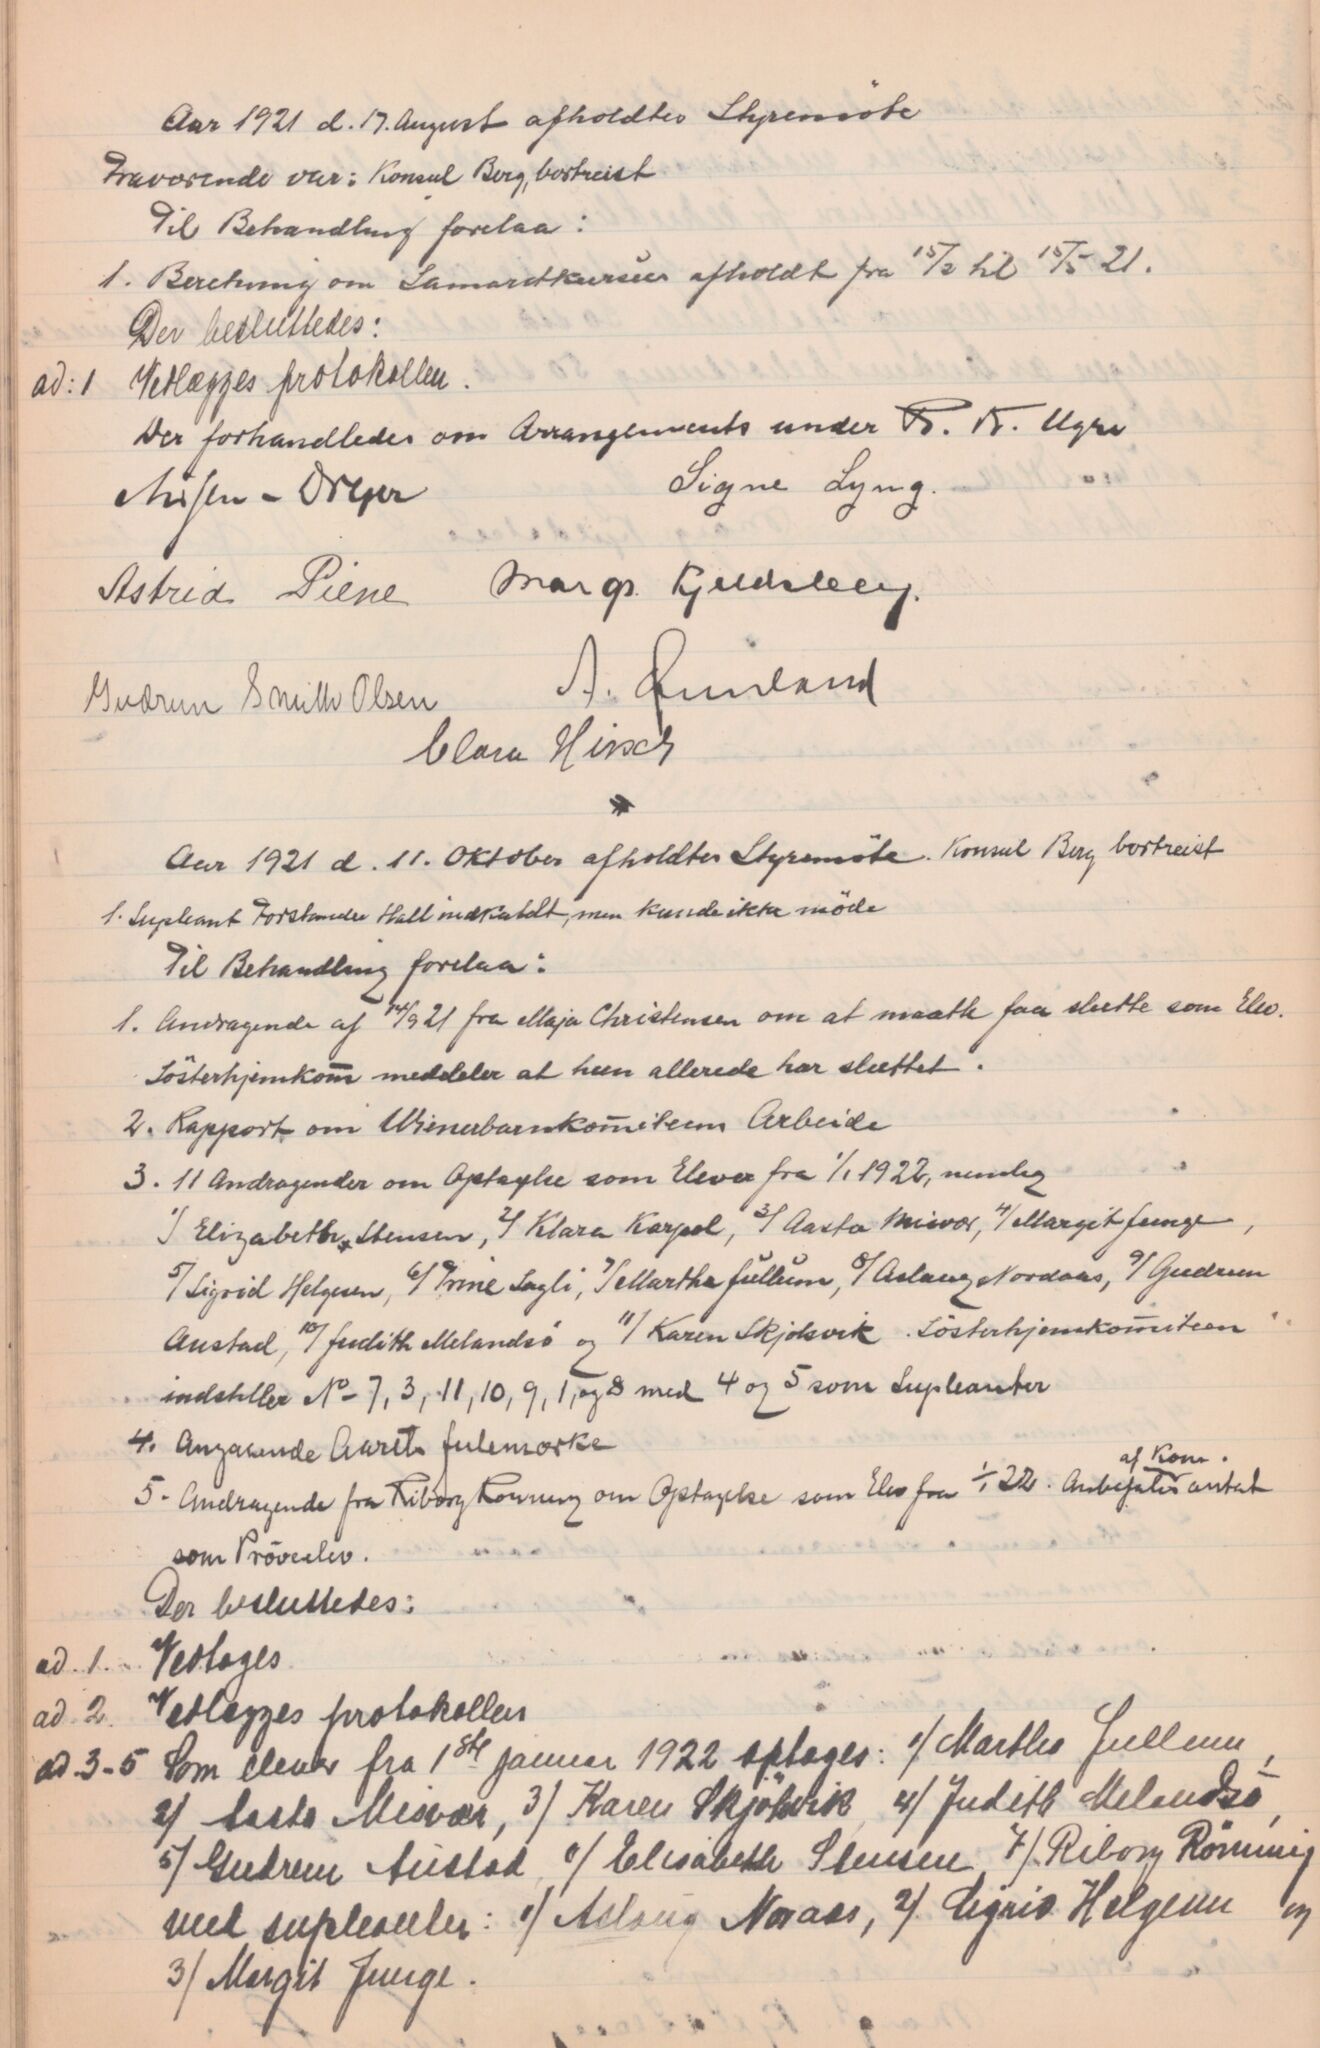 Aar 1921 d. 17. August afholdtes Styremöte
Fraværende var: Konsul Berg, bortreist
Til Behandling forelaa:
1. Beretning om Samaritkursus afholdt fra 15/2 til 15/5 21.
Der besluttedes:
ad: 1 Vedlægges protokollen.
Der forhandledes om Arrangements under R. K. Ugen
Nissen-Dreyer Signe Lyng.
Astrid Piene Margr. Kjeldsberg.
Gudrun Smith Olsen A.
Clara Hirsch
Aar 1921 d. 11. Oktober afholdtes Styremöte. Konsul Berg bortreist
1. Supleant Forstander Hall indkaldt, men kunde ikke möde
Til Behandling forelaa:
1. Andragende af 14/9 21 fra Maja Christensen om at maatte faa slutte som Elev.
Sösterhjemkom̅ meddeler at hun allerede har sluttet.
2. Rapport om Wienerbarnkom̅iteens Arbeide
3. 11 Andragender om Optagelse som Elever fra 1/1 1922, nemlig
1/ Elizabeth Stensen, 2/ Klara Karpel, 3/ Aasta Misvær, 4/ Margit Junge,
5/ Sigrid Helgesen, 6/ Trine Sagli, 7/ Martha Jullum, 8/ Aslaug Nordaas, 9/ Gudrun
Austad, 10/ Judith Melandsö og 11/ Karen Skjölsvik. Sösterhjemkom̅iteen
indstiller No 7, 3, 11, 10, 9, 1, og 8 med 4 og 5 som Supleanter
4. Angaaende Aarets Julemærke
5. Andragende fra Riborg Rönning om Optagelse som Elev fra 1/1 22. Anbefales af Kom. antat
som Pröveelev.
Der besluttedes:
ad. 1. Vedtages
ad. 2. Vedlægges protokollen
ad. 3-5 Som elever fra 1ste januar 1922 optages: 1/ Martha Jullum,
2/ Aasta Misvær, 3/ Karen Skjölsvik, 4/ Judith Melandsö,
5/ Gudrun Austad, 6/ Elisabeth Stensen, 7/ Riborg Rönning
med supleanter: 1/ Aslaug Noraas, 2/ Sigrid Helgesen og
3/ Margit Junge.